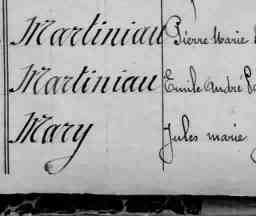 Martiniau Pierre Marie
Martiniau Emile André
Mary Jules marie